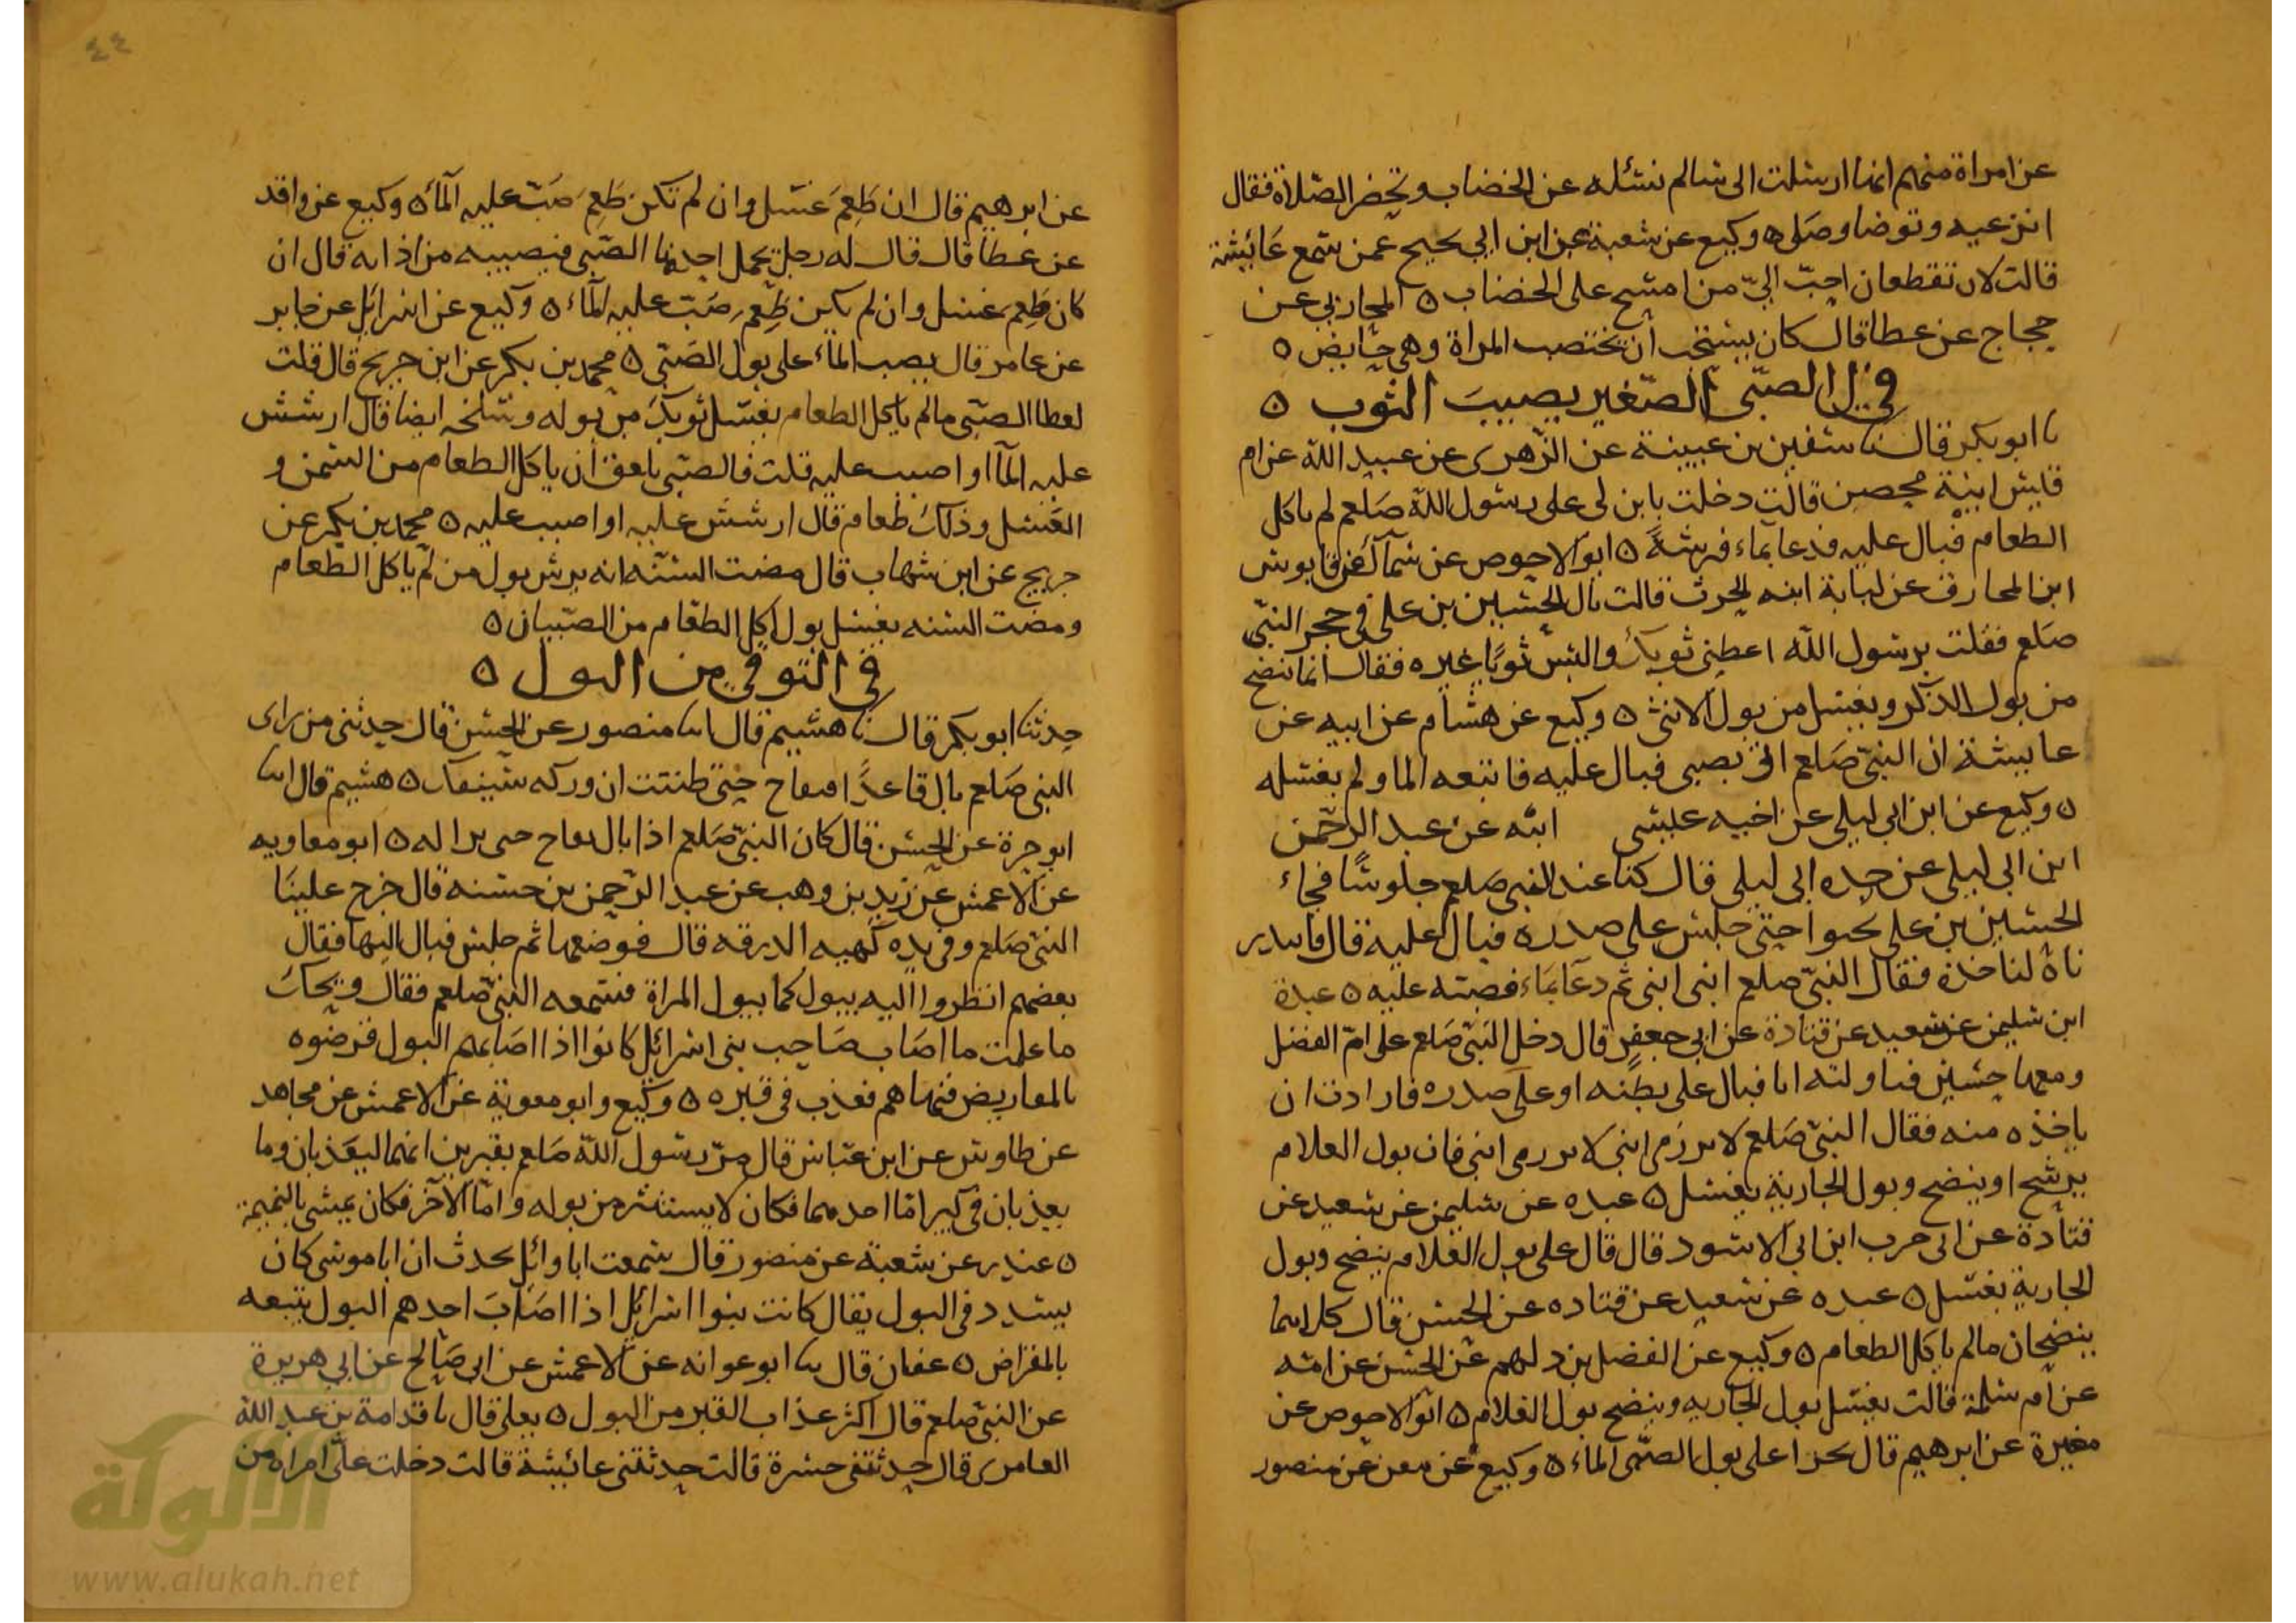 عن امراة منهم انها ارسلت الى سالم تسئله عن الخضاب وتحضر الصلاة فقال
انزعيه وتوضا وصلى ٥ وكيع عن شعبة عن ابن ابي نجيح عمن سمع عائيشة
قالت لان تقطعان احبّ اليّ من امسح على الخضاب ٥ المحاربي عن
حجاج عن عطا قال كان يستحب ان تختضب المراة وهى حايض ٥
في بول الصبى الصغير يصيب الثوب ٥
نا ابو بكر قال نا سفين بن عيينة عن الزهرى عن عبيد الله عن ام
قيس ابنة محصن قالت دخلت بابن لى على رسول الله صلعم لم ياكل
الطعام فبال عليه فدعا بماء فرشه ٥ ابو الاحوص عن سماك عن قابوس
ابن المخارق عن لبابة ابنه الحرث قالت بال الحسين بن على فى حجر النبى
صلعم فقلت يرسول الله اعطنى ثوبك والبس ثوبا غيره فقال انما ينضح
من بول الذكر ويغسل من بول الانثى ٥ وكيع عن هشام عن ابيه عن
عايشة ان النبى صلعم اتى بصبى فبال عليه فاتبعه الما ولم يغسله
٥ وكيع عن ابن ابى ليلى عن اخيه عيسى ابنه عن عبد الرحمن
ابن ابى ليلى عن جده ابى ليلى قال كنا عند النبى صلعم جلوسا فجاء
الحسين بن على يحبوا حتى جلس على صدره فبال عليه قال فابتدر
ناه لناخذه فقال النبى صلعم ابنى ابنى ثم دعا بماء فصبه عليه ٥ عبدة
ابن سليمن عن سعيد عن قتادة عن ابى جعفر قال دخل النبى صلعم على ام الفضل
ومعها حسين فناولته ايا فبال على بطنه او على صدره فارادت ان
ياخذه منه فقال النبى صلعم لا تزرمى ابنى لا تزرمى ابنى فان بول الغلام
يرشح او ينضح وبول الجارية يغسل ٥ عبده عن سليمن عن سعيد عن
قتادة عن ابى حرب ابن ابى الاسود قال قال على بول الغلام ينضح وبول
الجارية يغسل ٥ عبده عن سعيد عن قتاده عن الحسن قال كلاهما
ينضحان مالم ياكل الطعام ٥ وكيع عن الفضل بن دلهم عن الحسن عن امه
عن ام سلمة قالت يغسل بول الجاريه وينضح بول الغلام ٥ ابو الاحوص عن
مغيرة عن ابرهيم قال يجزا على بول الصبى الماء ٥ وكيع عن منصور
٤٤
عن ابرهيم قال ان طعم غسل وان لم تكن طعم صب عليه الماء ٥ وكيع عن واقد
عن عطا قال قال له رجل يحمل احدنا الصبى فيصيبه من اذابه قال ان
كان طعم غسل وان لم يكن طعم صب عليه الماء ٥ وكيع عن اسرائل عن جابر
عن عامر قال يصب الماء على بول الصبى ٥ محمد بن بكر عن ابن جريج قال قلت
لعطا الصبى مالم ياكل الطعام يغسل ثوبك من بوله وسلخه ايضا قال ارشش
عليه الماا او اصبب عليه قلت فالصبى يلعق ان ياكل الطعام من السمن و
العسل وذلك طعام قال ارشش عليه او اصبب عليه ٥ محمد بن بكر عن
جريج عن ابن شهاب قال مضت السنه انه يرش بول من لم ياكل الطعام
ومضت السنه يغسل بول اكل الطعام من الصبيان ٥
في التوقي من البول ٥
حدثنا ابو بكر قال نا هشيم قال انا منصور عن الحسن قال حدثنى من راى
النبى صلعم بال قاعدا حتى ظننت ان وركه سينفك ٥ هشيم قال انا
ابو حرة عن الحسن قال كان النبى صلعم اذا بال ٥ ابو معاويه
عن الاعمش عن زيد بن وهب عن عبد الرحمن بن حسنه قال خرج علينا
النبى صلعم وفى يده كهيه الدرقه قال فوضعها ثم جلس فبال اليها فقال
بعضهم انظروا اليه يبول كما يبول المراة فسمعه النبى صلعم فقال ويحك
ما علمت ما اصاب صاحب بنى اسرائل كانوا اذا اصابهم البول قرضوه
بالمقاريض فنهاهم فعذب فى قبره ٥ وكيع وابو معوية عن الاعمش عن مجاهد
عن طاوس عن ابن عباس قال مر رسول الله صلعم بقبرين انهما ليعذبان وما
يعذبان فى كبير اما احدهما فكان لا يستتر من بوله واما الاخر فكان يمشى بالنميمة
٥ غندر عن شعبة عن منصور قال سمعت ابا وائل يحدث ان ابا موسى كان
يشدد فى البول يقال كانت بنوا اسرائل اذا اصاب احدهم البول يتبعه
بالمقراض ٥ عفان قال نا ابو عوانه عن الاعمش عن ابى صالح عن ابى هريرة
عن النبى صلعم قال اكثر عذاب القبر من البول ٥ يعلى قال نا قدامة بن عبد الله
العامرى قال حدثتنى جسرة قالت حدثتنى عائيشة قالت دخلت على امراه من
الألوكة
www.alukah.net